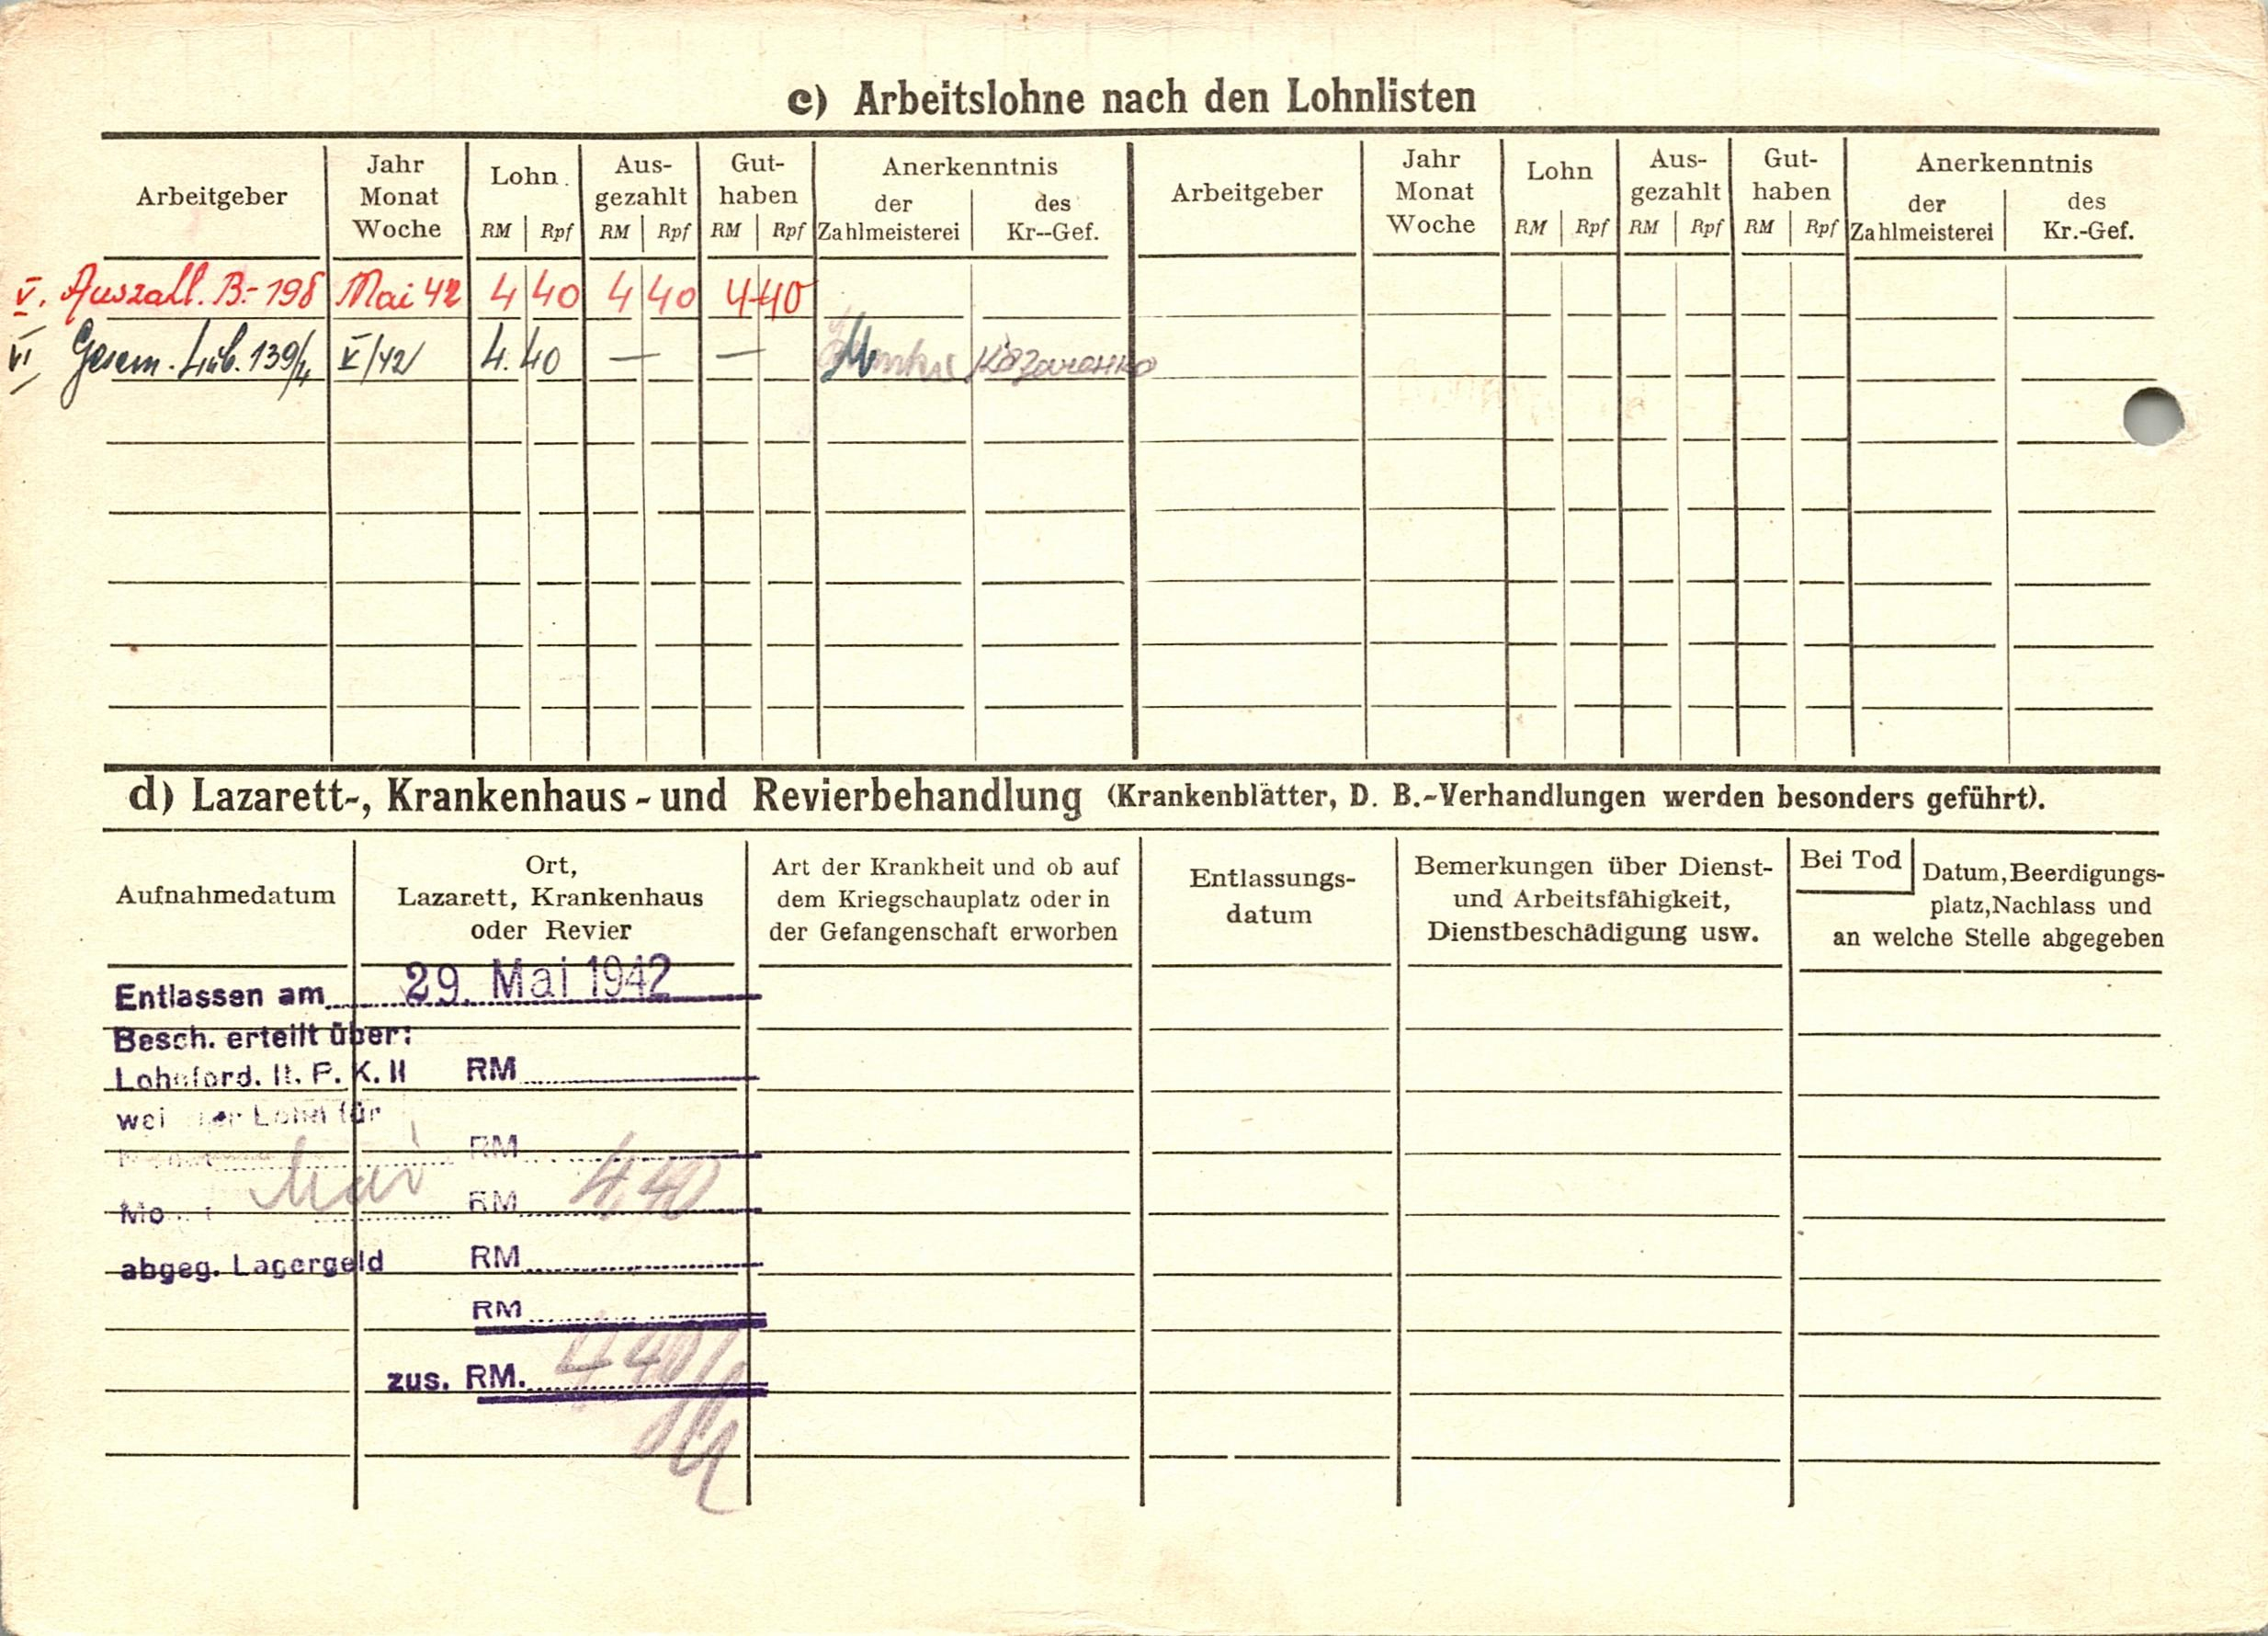 c) Arbeitslohne nach den Lohnlisten
Arbeitgeber | Jahr Monat Woche | Lohn RM Rpf | Aus-gezahlt RM Rpf | Gut-haben RM Rpf | Anerkenntnis der Zahlmeisterei | des Kr--Gef. | Arbeitgeber | Jahr Monat Woche | Lohn RM Rpf | Aus-gezahlt RM Rpf | Gut-haben RM Rpf | Anerkenntnis der Zahlmeisterei | des Kr.-Gef.
V. Auszahl. B.- 198 | Mai 42 | 4 40 | 4 40 | 4 40
VI 139/4 | V/42 | 4. 40 | — | —
d) Lazarett-, Krankenhaus - und Revierbehandlung (Krankenblätter, D. B.-Verhandlungen werden besonders geführt).
Aufnahmedatum | Ort, Lazarett, Krankenhaus oder Revier | Art der Krankheit und ob auf dem Kriegschauplatz oder in der Gefangenschaft erworben | Entlassungs-datum | Bemerkungen über Dienst- und Arbeitsfähigkeit, Dienstbeschädigung usw. | Bei Tod Datum, Beerdigungs-platz, Nachlass und an welche Stelle abgegeben
Entlassen am 29. Mai 1942
Besch. erteilt über:
Lohnford. lt. P. K. II RM
Lohn für
RM
Mai RM 4.40
abgeg. Lagergeld RM
RM
zus. RM. 4 40